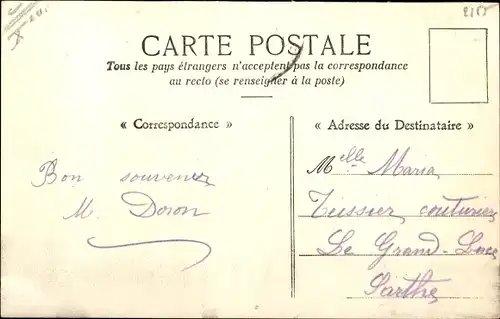 CARTE POSTALE
Tous les pays étrangers n'acceptent pas la correspondance
au recto (se renseigner à la poste)
« Correspondance »
Bon souvenir
M. Doron
« Adresse du Destinataire »
Melle Maria
Teissier couturière
Le Grand-Lucé
Sarthe